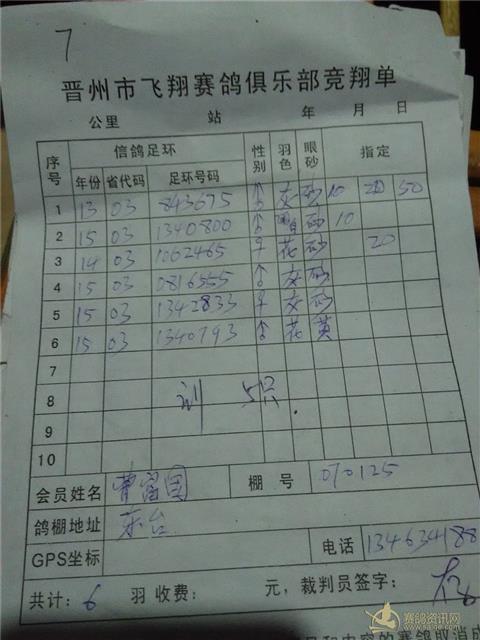 7
晋州市飞翔赛鸽俱乐部竞翔单
公里 站 年 月 日
序号 信鸽足环 性别 羽色 眼砂 指定
年份 省代码 足环号码
1 13 03 843675 ♂ 灰 砂 10 20 50
2 15 03 1340800 ♂ 砂 10
3 14 03 1062465 ♀ 花 砂 20
4 15 03 0816555 ♂ 灰 砂
5 15 03 1342833 ♀ 灰 砂
6 15 03 1340793 ♂ 花 黄
7
8 训 5只
9
10
会员姓名 曹富国 棚号 070125
鸽棚地址 东台
GPS坐标 电话 134634188
共计: 6 羽 收费: 元, 裁判员签字:
赛鸽资讯网
www.saige.com